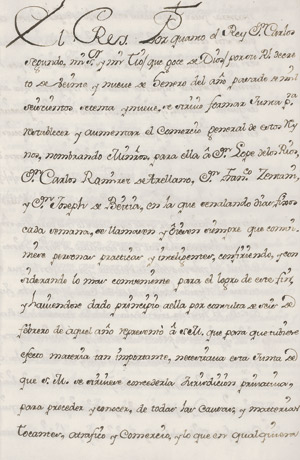 El Rey Por quanto el Rey Dn Carlos
segundo, mi Sr. y mi Tio (que goze de Dios) por su Rl. decre
to de Veinte y nueve de Henero del año pasado de mil
seiscientos setenta y nueve, se sirvio formar Junta pa.
restablecer y aumentar el Comercio general de estos Rey
nos, nombrando Ministros, para ella â Dn. Lope de los Rios,
Dn. Carlos Ramirez de Arellano, Dn. Franco.
y Dn. Joseph de Beitia, en la que señalando dias fixos
cada semana, se llamasen y oyesen siempre que combi
niese personas practicas y inteligentes, confiriendo, y con
siderando lo mas combeniente para el logro de este fin,
y haviendose dado principio aella por consulta de seis de
febrero de aquel año representò â S.M. que para que tubiese
efecto materia tan importante, necesitava esta Junta de
que S. M. se sirviese concederla Jurisdicion privativa,
para proceder y conocer, de todas las causas, y materias
tocantes, atrafico y Comercio, y lo que en qualquiera